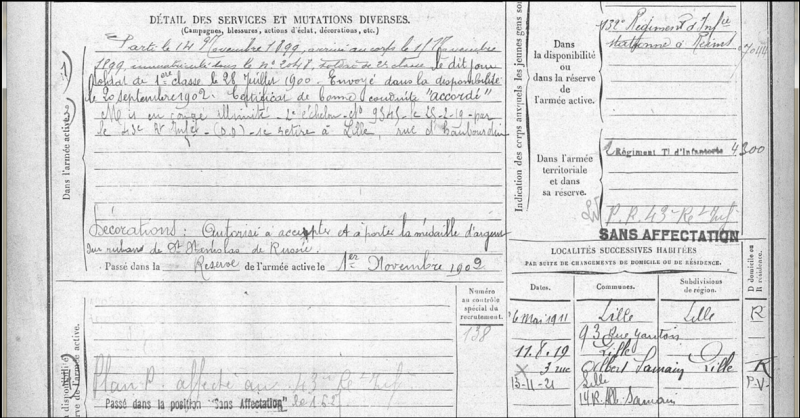 DÉTAIL DES SERVICES ET MUTATIONS DIVERSES.
(Campagnes, blessures, actions d'éclat, décorations, etc.)
Parti le 14 Novembre 1899, arrivé au corps le 15 Novembre
1899, immatriculé dans le n° 2048, Soldat de 2e classe le dit jour
Soldat de 1ère classe le 28 Juillet 1900. Envoyé dans la disponibilité
le 20 septembre 1902. Certificat de bonne conduite "accordé"
Mis en congé illimité - échelon - n° 9345 - le 25-2-19 par
le 43e Rt Infie - (D.D) - se retire à Lille, rue d'Haubourdin
Décorations : Autorisé à accepter et à porter la médaille d'argent
sur ruban de St Stanislas de Russie.
Passé dans la Réserve de l'armée active le 1er Novembre 1902
Dans l'armée active.
Numéro
au contrôle
spécial du
recrutement.
138
Plan P. affecté au 43e Rt Inf
Passé dans la position "Sans Affectation"
disponibilité
réserve de l'armée active.
Indication des corps auxquels les jeunes gens sont
Dans
la disponibilité
ou
dans la réserve
de
l'armée active.
132e Régiment d'Infie
stationné à Reims
Dans l'armée
territoriale
et dans
sa réserve.
Régiment Tl d'Infanterie
4300
P. R. 43e Rt Inf
SANS AFFECTATION
LOCALITÉS SUCCESSIVES HABITÉES
PAR SUITE DE CHANGEMENTS DE DOMICILE OU DE RÉSIDENCE.
Dates.
Communes.
Subdivisions
de région.
D domicile ou
R résidence.
6 Mai 1911
Lille
Lille
R
93 rue
11.8.19
Lille
Lille
R
3 rue
Albert Samain
P.V.
13-11-21
Lille
14 R. Alb. Samain